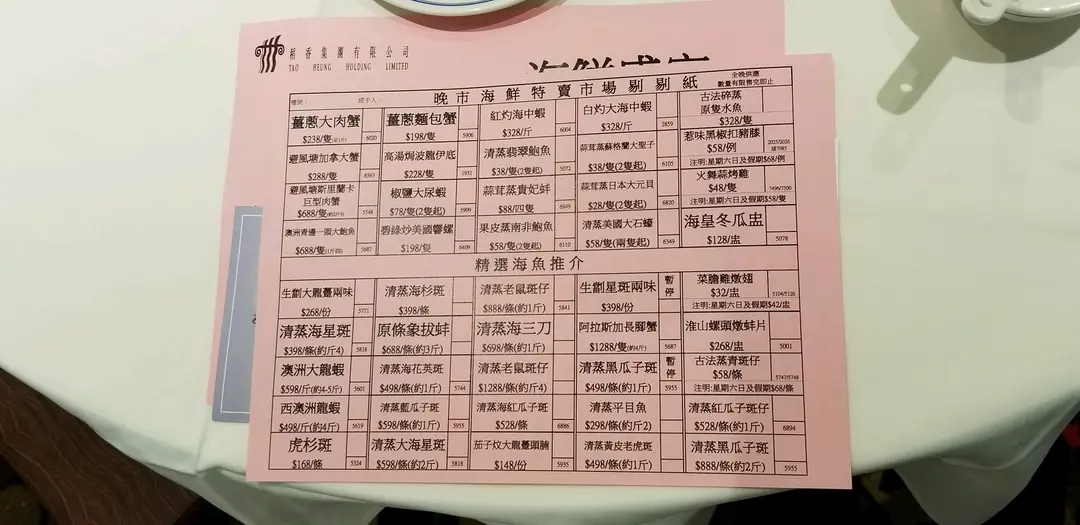 稻香集團有限公司
TAO HEUNG HOLDING LIMITED
晚市海鮮特賣市場剔剔紙
全晚供應
數量有限售完即止
經手人：
薑蔥大肉蟹
$238/隻
6020
薑蔥麵包蟹
$198/隻
5906
紅灼海中蝦
$328/斤
6004
白灼大海中蝦
$328/斤
2859
古法碎蒸
原隻水魚
$328/隻
避風塘加拿大蟹
$288/隻
6563
高湯焗波龍伊底
$228/隻
1931
清蒸翡翠鮑魚
$38/隻(2隻起)
5072
蒜茸蒸蘇格蘭大聖子
$38/隻(2隻起)
6105
惹味黑椒扣豬膝
$58/例
2025/2026
注明:星期六日及假期$68/例
避風塘斯里蘭卡
巨型肉蟹
$688/隻
5548
椒鹽大尿蝦
$78/隻(2隻起)
5909
蒜茸蒸貴妃蚌
$88/四隻
6949
蒜茸蒸日本大元貝
$28/隻(2隻起)
6820
火舞蒜烤雞
$48/隻
7496/7500
注明:星期六日及假期$58/隻
澳洲青邊一頭大鮑魚
$688/隻
5687
碧綠炒美國響螺
$198/隻
6409
果皮蒸南非鮑魚
$58/隻(2隻起)
6110
清蒸美國大石蠔
$58/隻(兩隻起)
6349
海皇冬瓜盅
$128/盅
5078
精選海魚推介
生劏大龍躉兩味
$268/份
5771
清蒸海杉斑
$398/條
清蒸老鼠斑仔
$888/條(約1斤)
5841
生劏星斑兩味
$398/份
暫停
菜膽雞燉翅
$32/盅
5104/5126
注明:星期六日及假期$42/盅
清蒸海星斑
$398/條(約斤4)
5818
原條象拔蚌
$688/條(約3斤)
清蒸海三刀
$698/條(約1斤)
阿拉斯加長腳蟹
$1288/隻(約4斤)
5687
淮山螺頭燉蚌片
$268/盅
5001
澳洲大龍蝦
$598/斤(約4-5斤)
5601
清蒸海花英斑
$498/條(約1斤)
5744
清蒸老鼠斑仔
$1288/條(約斤4)
清蒸黑瓜子斑
$498/條(約1斤)
暫停
5955
古法蒸青斑仔
$58/條
5747/5748
注明:星期六日及假期$68/條
西澳洲龍蝦
$498/斤(約4斤)
5619
清蒸藍瓜子斑
$598/條(約1斤)
5955
清蒸海紅瓜子斑
$528/條(約1斤)
6886
清蒸平目魚
$298/條(約斤2)
清蒸紅瓜子斑仔
$528/條(約1斤)
6894
虎杉斑
$168/條
5324
清蒸大海星斑
$598/條(約2斤)
5818
茄子炆大龍躉頭腩
$148/份
5935
清蒸黃皮老虎斑
$498/條(約1斤)
清蒸黑瓜子斑
$888/條(約2斤)
5955